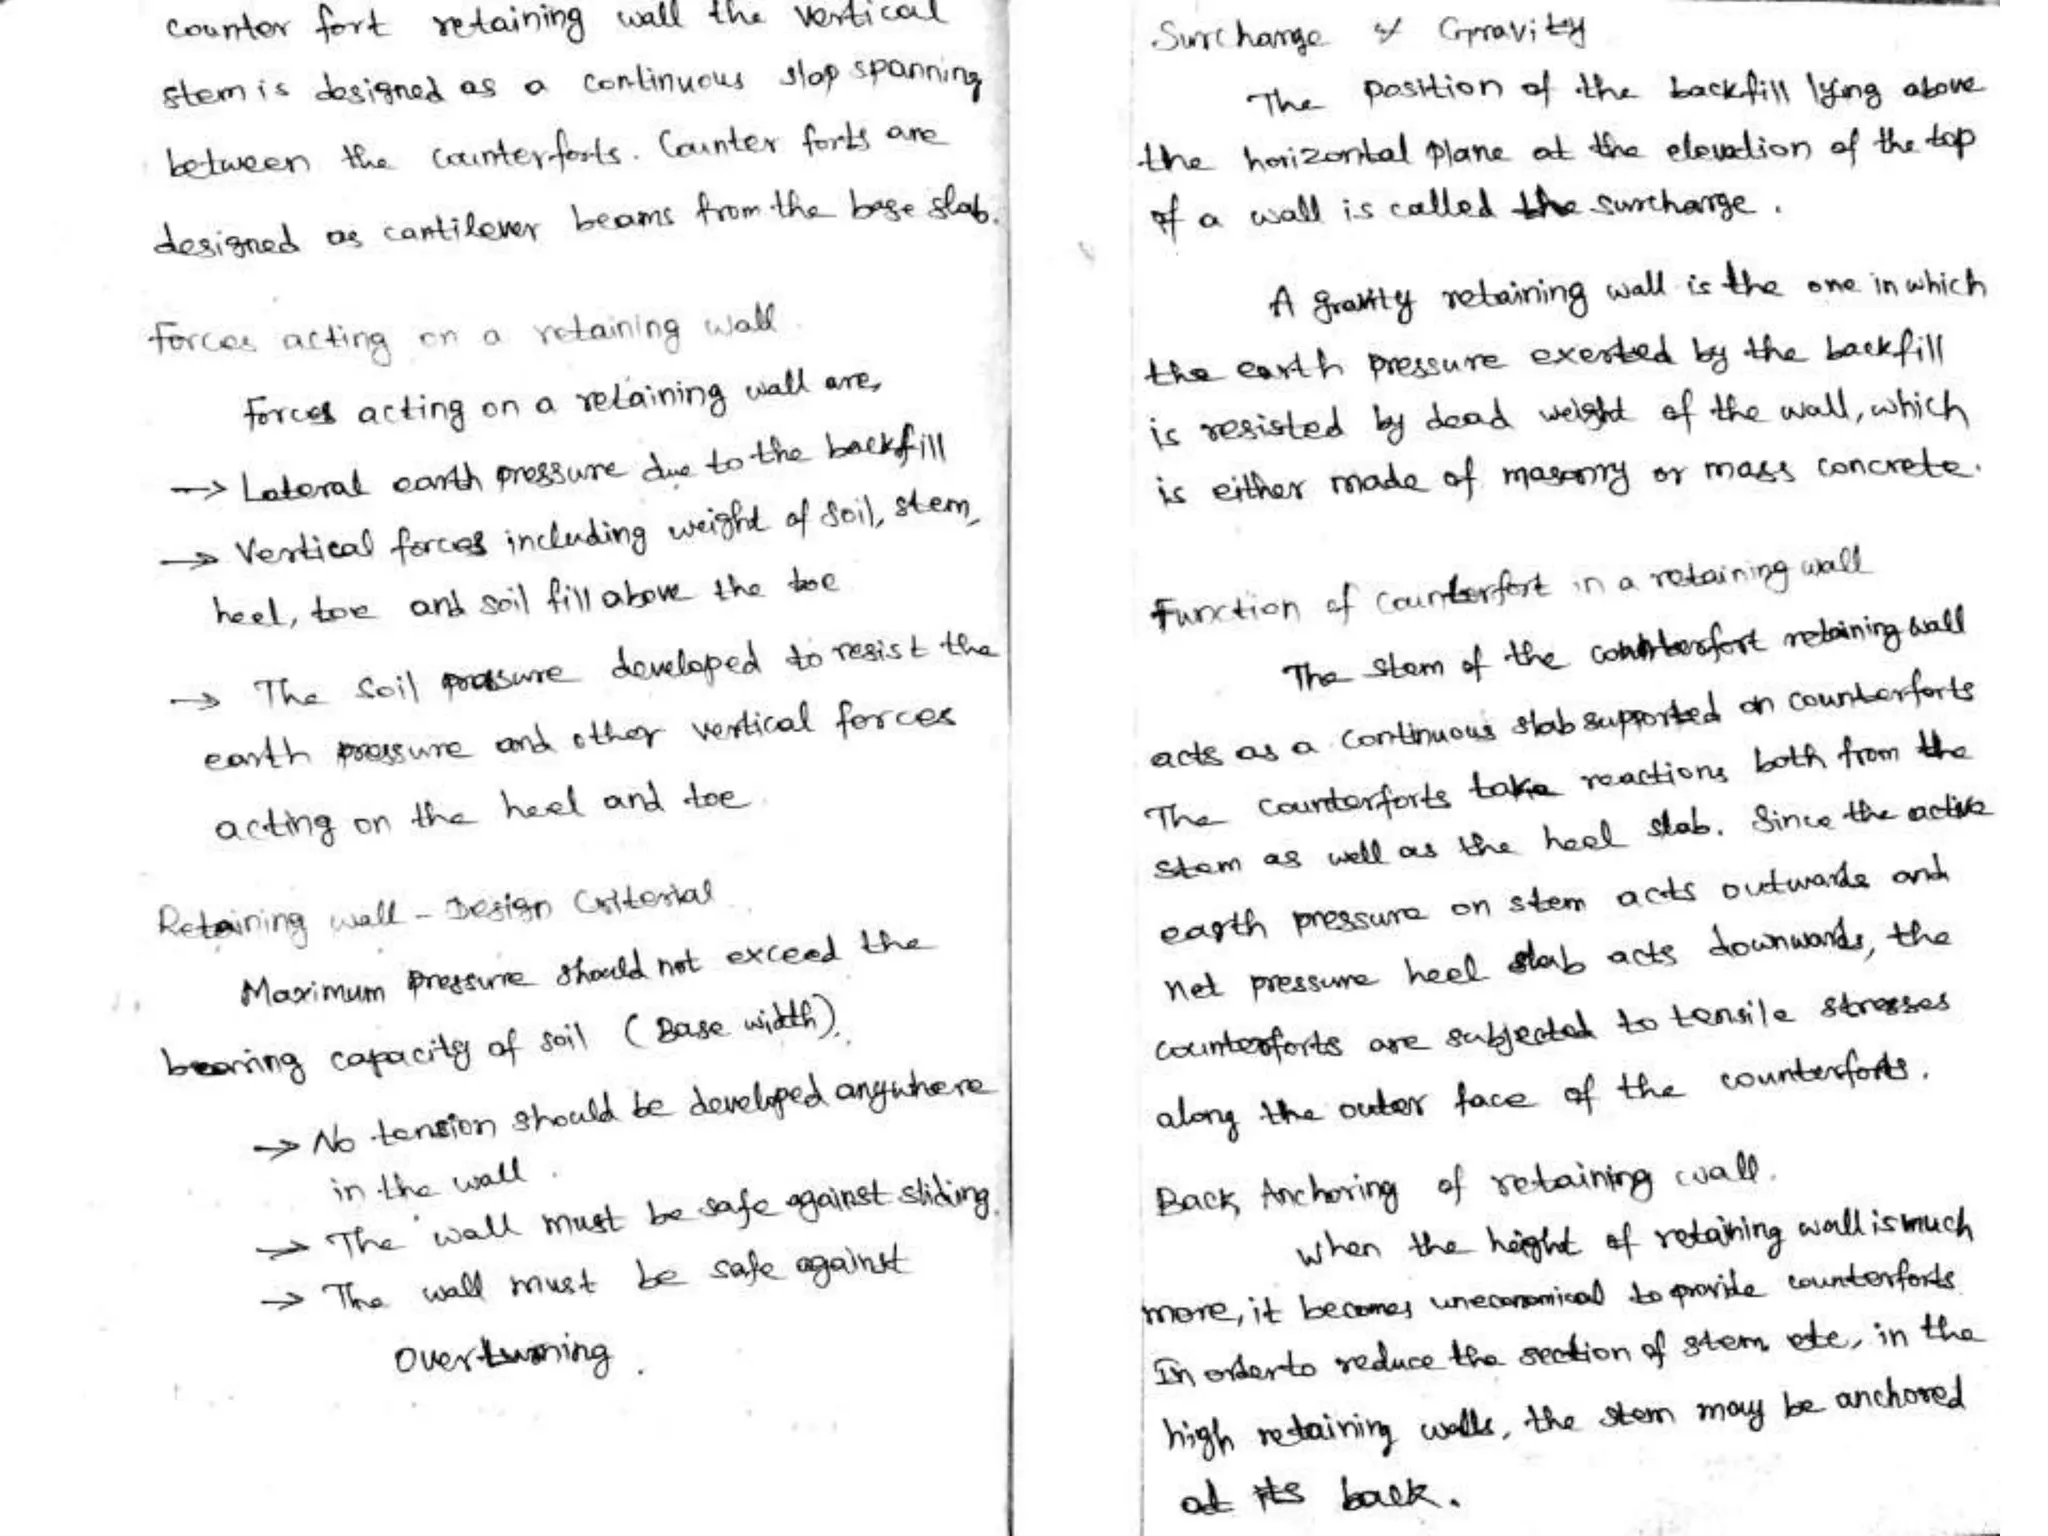 counter fort retaining wall the vertical
stem is designed as a continuous slap spanning
between the counterforts. Counter forts are
designed as cantilever beams from the base slab.
Forces acting on a retaining wall
Forces acting on a retaining wall are,
→ Lateral earth pressure due to the backfill
→ Vertical forces including weight of soil, stem,
heel, toe and soil fill above the toe
→ The soil pressure developed to resist the
earth pressure and other vertical forces
acting on the heel and toe
Retaining wall - Design Criterial
Maximum pressure should not exceed the
bearing capacity of soil (Base width).
→ No tension should be developed anywhere
in the wall.
→ The wall must be safe against sliding.
→ The wall must be safe against
overturning.
Surcharge & Gravity
The position of the backfill lying above
the horizontal plane at the elevation of the top
of a wall is called the surcharge.
A gravity retaining wall is the one in which
the earth pressure exerted by the backfill
is resisted by dead weight of the wall, which
is either made of masonry or mass concrete.
Function of counterfort in a retaining wall
The stem of the counterfort retaining wall
acts as a continuous slab supported on counterforts
The counterforts take reactions both from the
stem as well as the heel slab. Since the active
earth pressure on stem acts outwards and
net pressure heel slab acts downwards, the
counterforts are subjected to tensile stresses
along the outer face of the counterforts.
Back Anchoring of retaining wall.
When the height of retaining wall is much
more, it becomes uneconomical to provide counterforts
In order to reduce the section of stem etc, in the
high retaining walls, the stem may be anchored
at its back.